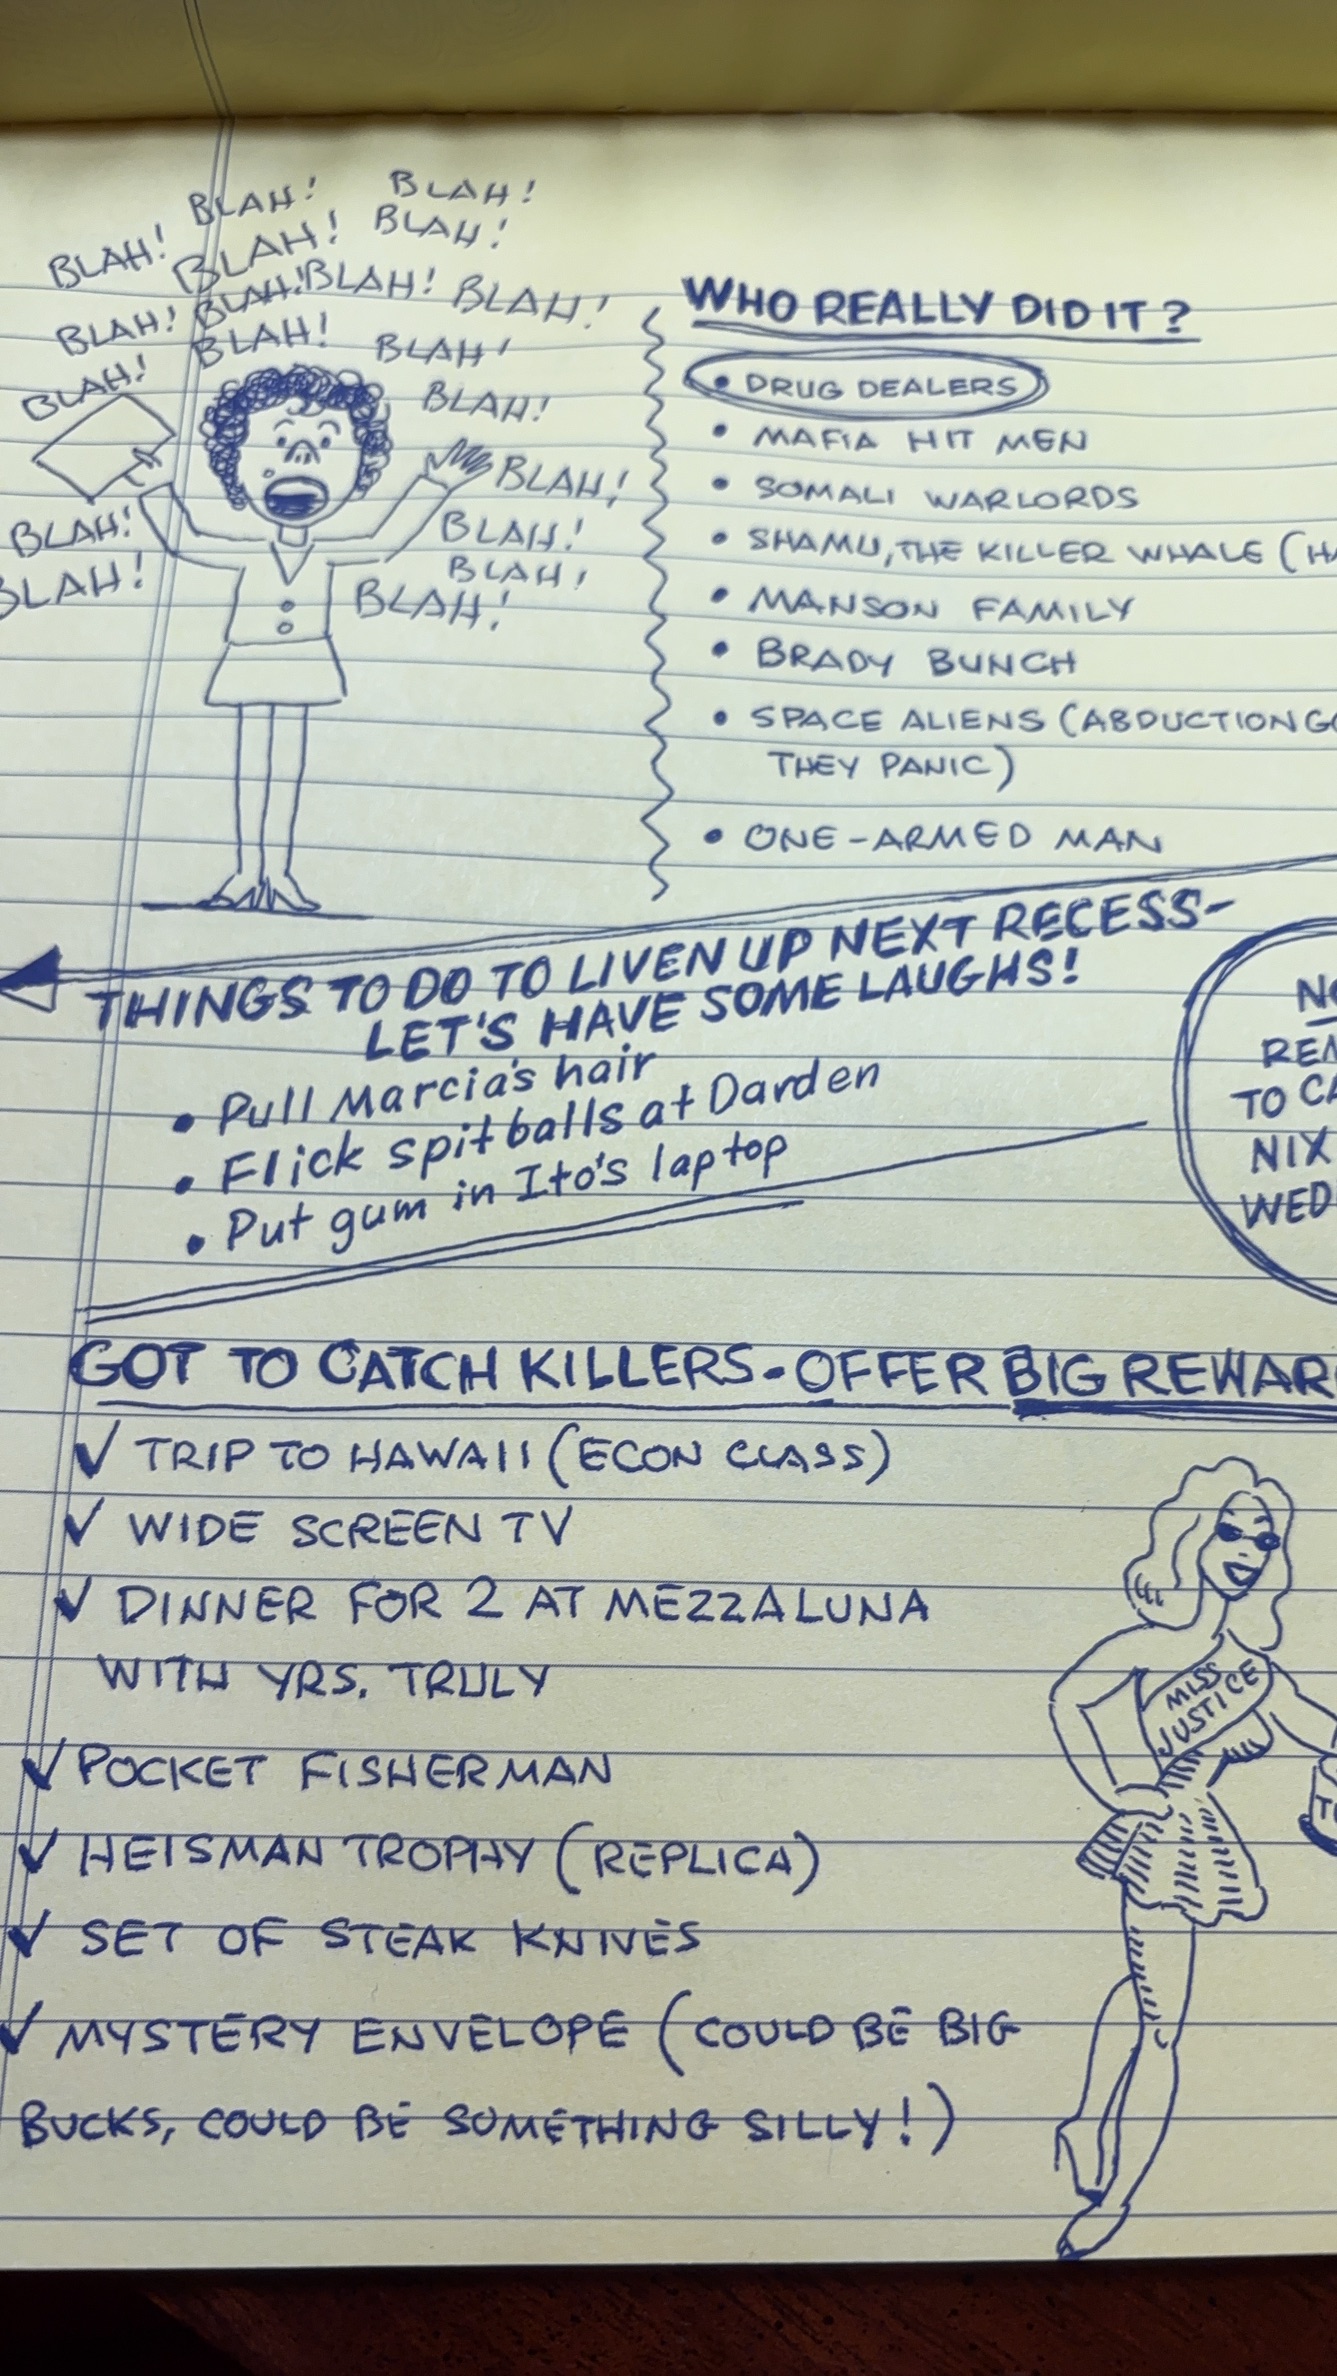 BLAH! BLAH!
BLAH! BLAH! BLAH!
BLAH! BLAH! BLAH! BLAH!
BLAH! BLAH! BLAH!
BLAH! BLAH!
BLAH!
BLAH! BLAH!
BLAH! BLAH!
BLAH!
WHO REALLY DID IT?
• DRUG DEALERS
• MAFIA HIT MEN
• SOMALI WARLORDS
• SHAMU, THE KILLER WHALE (HA
• MANSON FAMILY
• BRADY BUNCH
• SPACE ALIENS (ABDUCTION GO
THEY PANIC)
• ONE-ARMED MAN
THINGS TO DO TO LIVEN UP NEXT RECESS-
LET'S HAVE SOME LAUGHS!
• Pull Marcia's hair
• Flick spitballs at Darden
• Put gum in Ito's laptop
NO
REA
TO CA
NIX
WED
GOT TO CATCH KILLERS-OFFER BIG REWAR
✓ TRIP TO HAWAII (ECON CLASS)
✓ WIDE SCREEN TV
✓ DINNER FOR 2 AT MEZZALUNA
WITH YRS. TRULY
✓ POCKET FISHERMAN
✓ HEISMAN TROPHY (REPLICA)
✓ SET OF STEAK KNIVES
✓ MYSTERY ENVELOPE (COULD BE BIG
BUCKS, COULD BE SOMETHING SILLY!)
MISS
JUSTICE